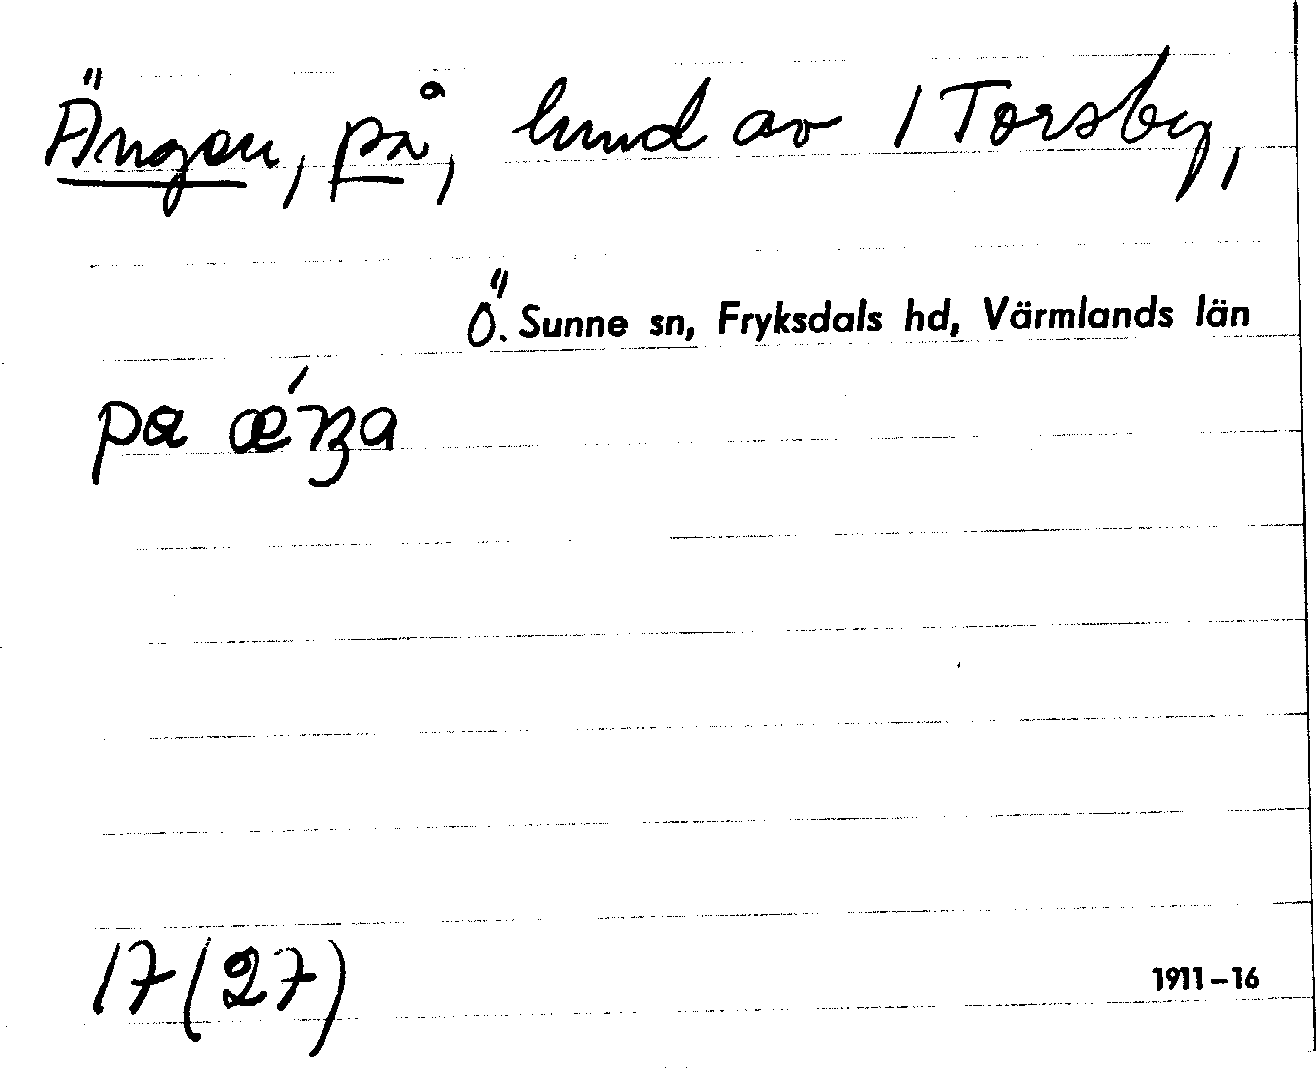 Ängen, på, lund av 1 Torsby,
Ö. Sunne sn, Fryksdals hd, Värmlands län
pa
17(27)
1911-16